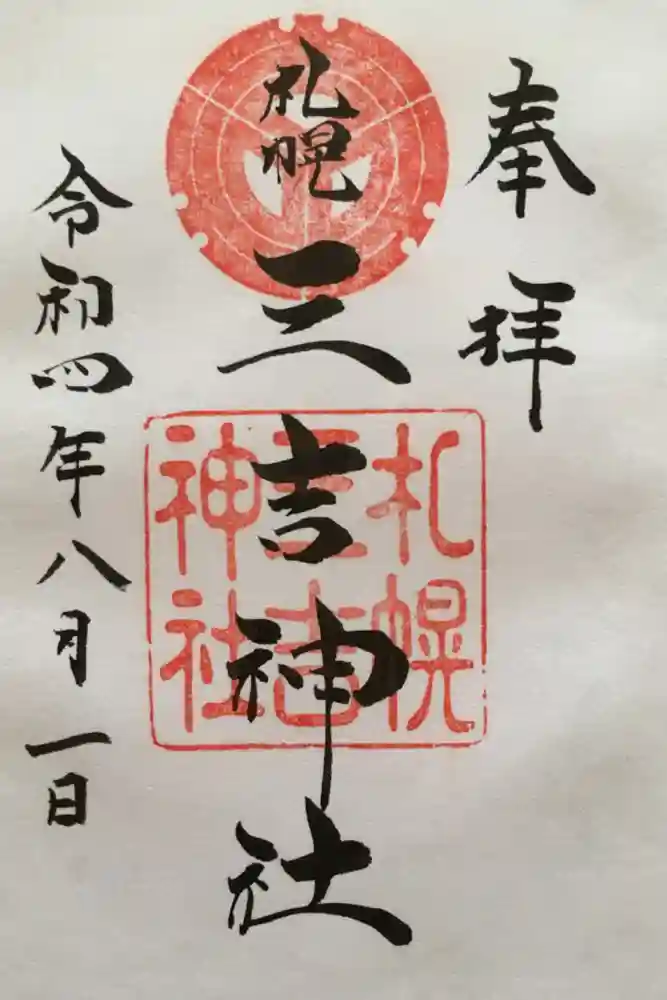 奉拝
札幌
三吉神社
札幌
三吉
神社
令和四年八月一日